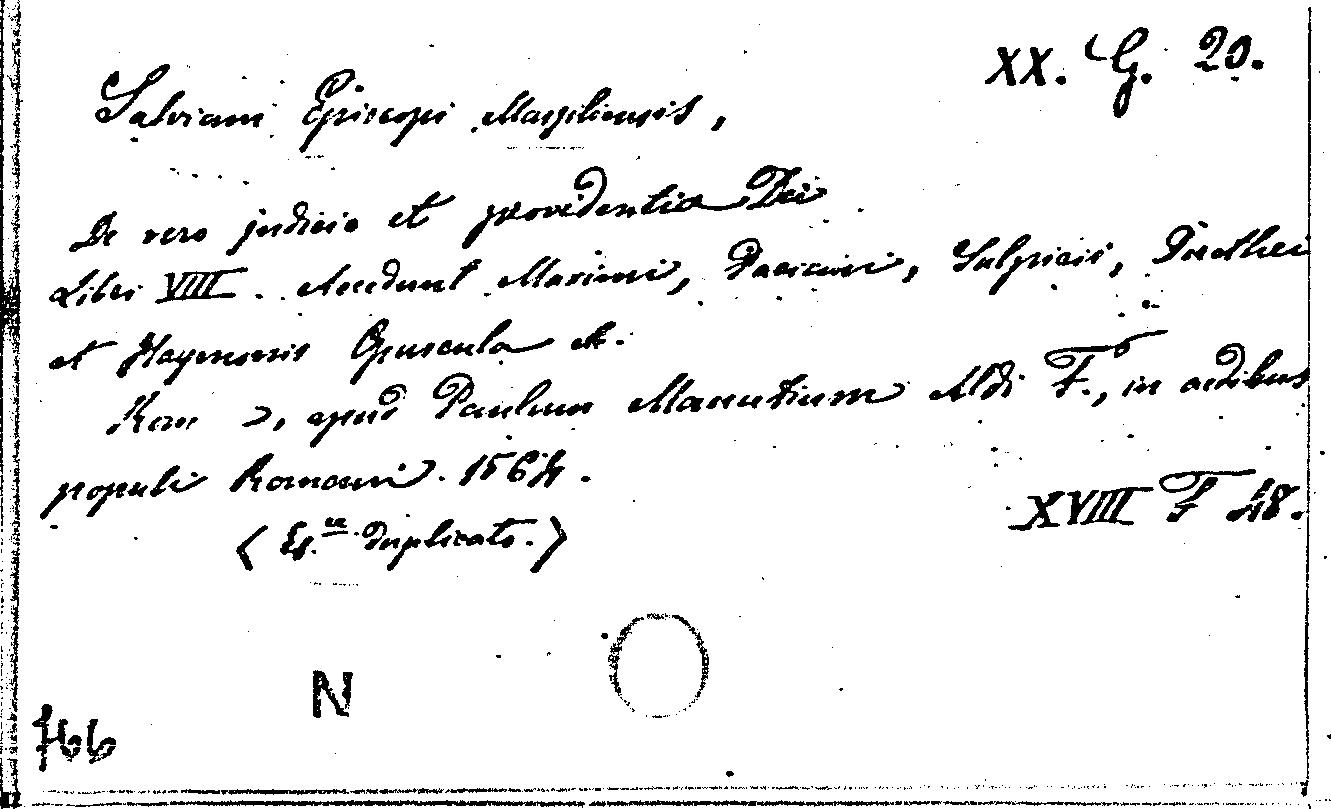 XX. G. 20.
Salviani Episcopi Massiliensis,
De vero judicio et providentia Dei
Libri VIII. Accedunt Maximi, Paciani, Sulpicii, Dorothei
et Haymonis Opuscula etc.
Rom , apud Paulum Manutium Aldi F., in aedibus
populi Romani. 1564.
XVIII F 48.
( duplicato.)
N
766